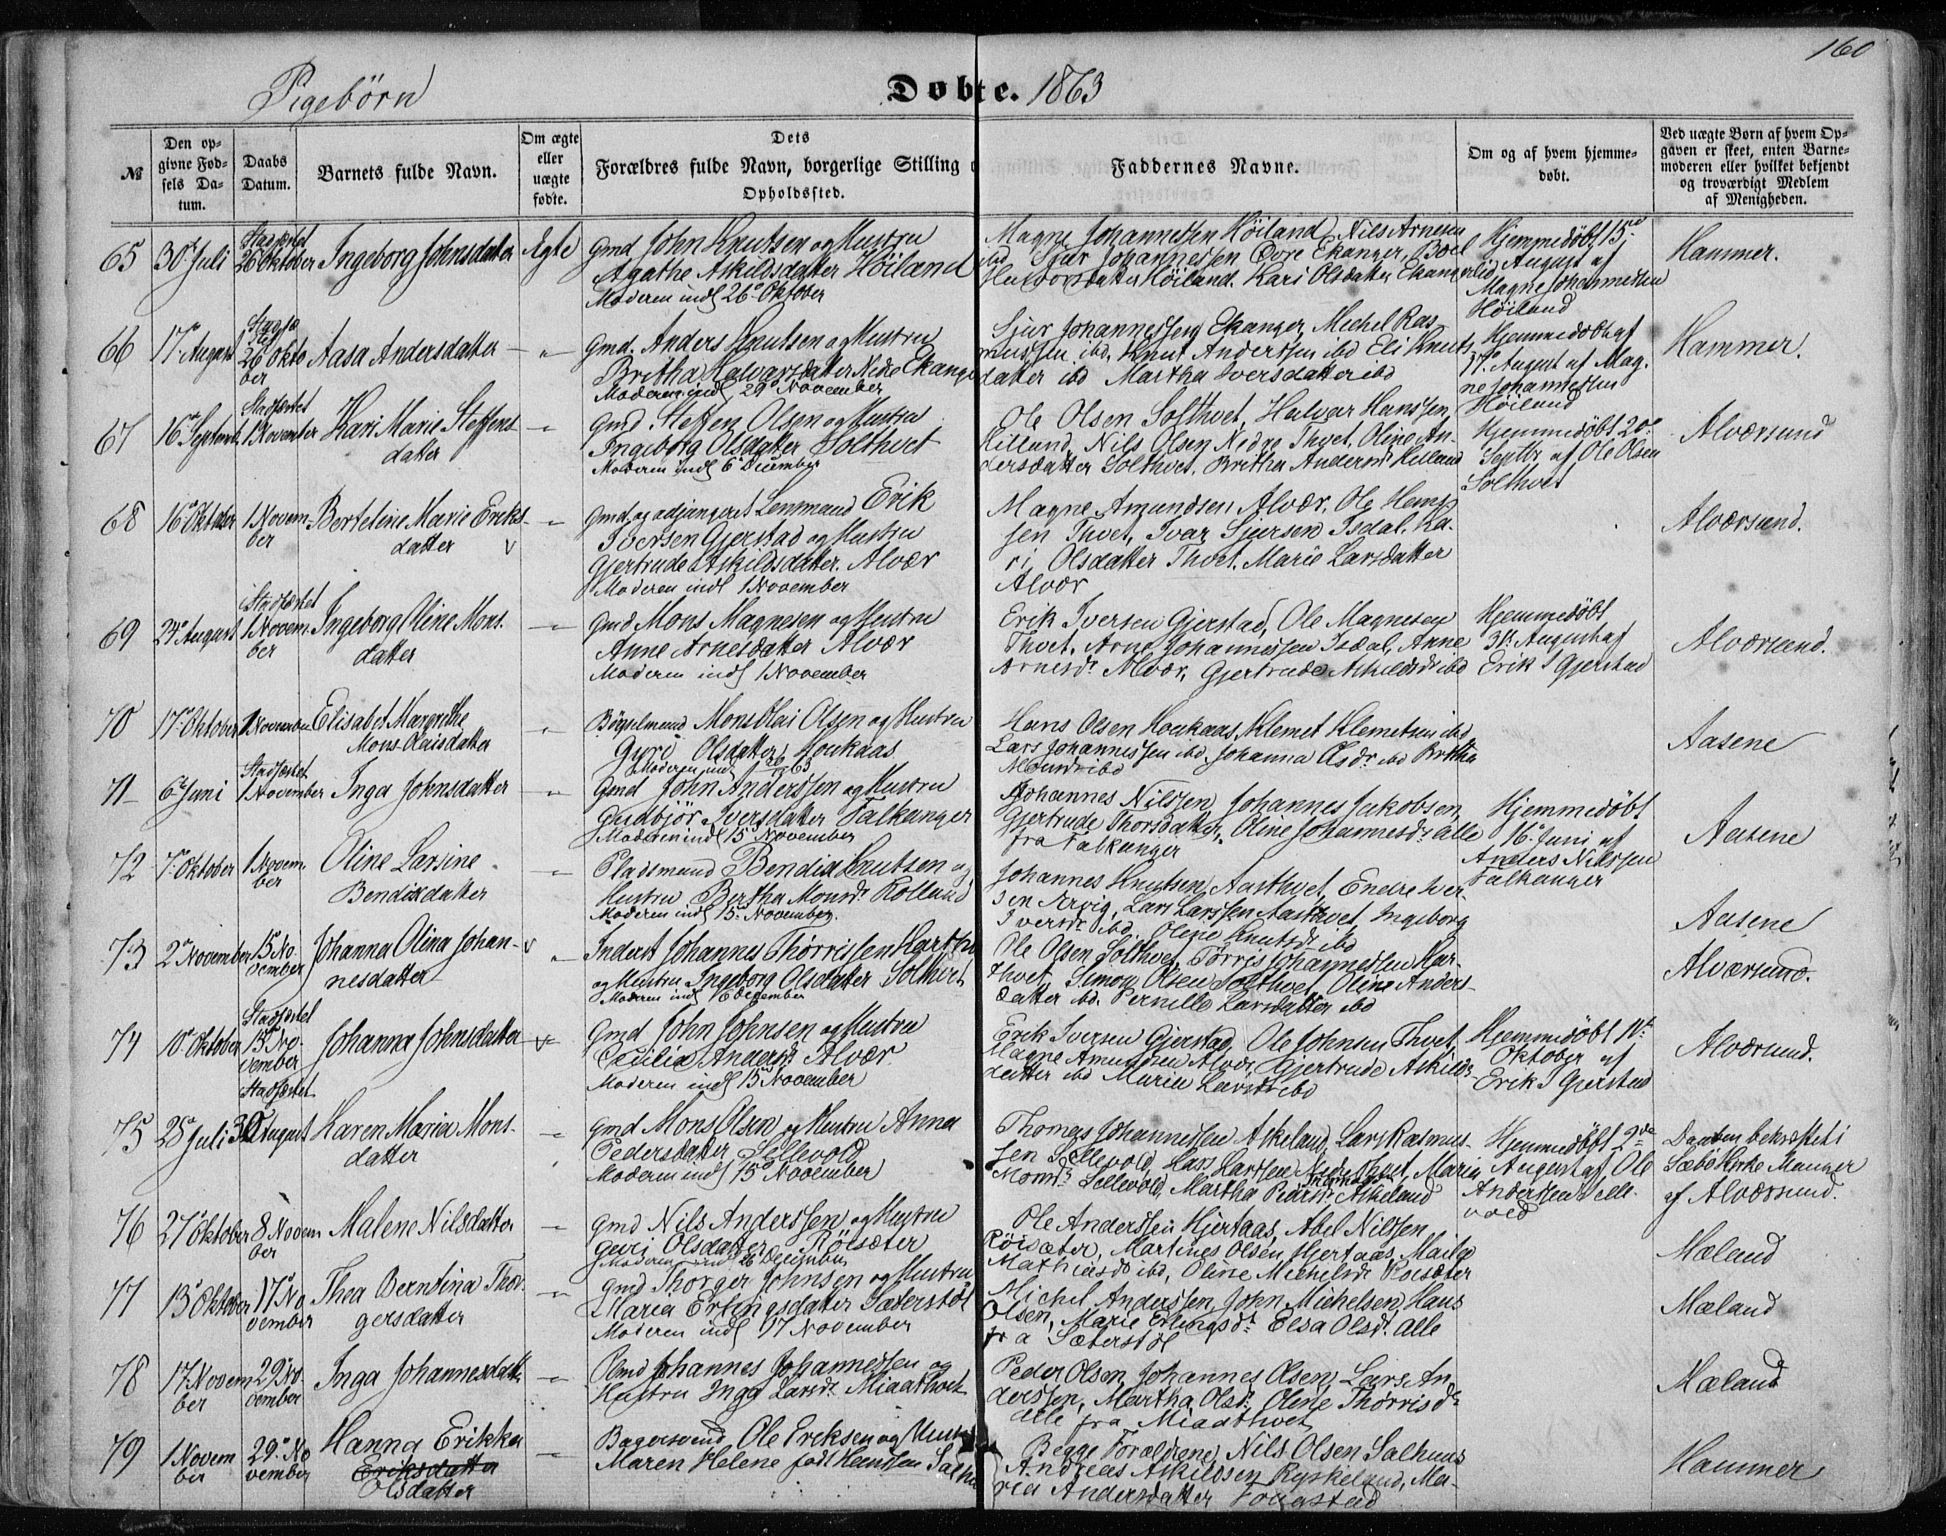 160
Pigebörn
Døbte. 1863
№
Den op-
givne Fød-
sels Da-
tum.
Daabs
Datum.
Barnets fulde Navn.
Om ægte
eller
uægte
fødte.
Dets
Forældres fulde Navn, borgerlige Stilling
Opholdssted.
Faddernes Navne.
Om og af hvem hjemme-
døbt.
Ved uægte Børn af hvem Op-
gaven er skeet, enten Barne-
moderen eller hvilket bekjendt
og troværdigt Medlem
af Menigheden.
65
30 Juli
Stadfæstet
26 Oktober
Ingeborg Johnsdatter
Ægte
Gmd John Knutsen og Hustru
Agathe Askildsdatter Höiland
Moderen indl 26 Oktober
Magne Johannessen Höiland, Nils Arnesen
ibd Sjur Johannessen Ekanger
Höiland. Kari Olsdatter Ekanger
Hjemmedöbt
August af
Magne Johannessen
Höiland
Hammer.
66
17 August
26 Okto
ber
Aasa Andersdatter
"
Gmd. Anders Knutsen og Hustru
Britha Halvarsdatter Nedre Ekanger
Moderen indl 29 November
Sjur Johannessen Ekanger, Michel Ras
mussen ibd, Knut Anderssen ibd Eli Knuts
datter ibd Martha Iversdatter ibd
Hjemmedöbt af
17 August af Mag-
ne Johannessen
Höiland
Hammer.
67
16 Septemb.
Stadfæstet
1 November
Kari Marie Steffens
datter
"
Gmd Steffen Olsen og Hustru
Ingeborg Olsdatter Solthvet
Moderen indl 6 December
Ole Olsen Solthvet, Halvar Hanssen,
Nils Olsen Nedre Thvet, Oline An-
dersdatter Solthvet. Britha
Hjemmedöbt 20
Septbr af Ole Olsen
Solthvet
Alværsund
68
16 Oktober
1 Novem-
ber
Berteline Marie Eriks-
datter
"
Gmd og adjungeret Lensmand Erik
Iversen Gjerstad og Hustru
Gjertrude Askildsdatter. Alvær
Moderen indl 1 November
Magne Amundsen Alvær. Ole
sen Thvet, Ivar Sjursen Isdal, Ka-
ri Olsdatter Thvet. Marie Larsdatter
Alvær
Alværsund.
69
24 August
Stadfæstet
1 Novem-
ber
Ingeborg Oline Mons-
datter
"
Gmd Mons Magnesen og Hustru
Anne Arnesdatter Alvær
Moderen indl 1 November
Erik Iversen Gjerstad, Ole Magnesen
Thvet. Arne Johannessen Isdal, Anne
Arnesdr Alvær, Gjertrude Askildsdr ibd
Hjemmedöbt
30 August af
Erik I Gjerstad
Alværsund.
70
17 Oktober
1 November
Elisabet Margrethe
Mons Olaisdatter
"
Mons Olai Olsen og Hustru
Guri Olsdatter Houkaas
Moderen indl
Hans Olsen Houkaas, Klemet Klemetsen ibd
Lars Johannessen ibd. Johanna Olsdr ibd Britha
ibd
Aasene
71
6 Juni
Stadfæstet
1 November
Inga Johnsdatter
"
Gmd John Anderssen og Hustru
Gudbjör Iversdatter Falkanger
Moderen indl 15 November
Johannes Nilssen, Johannes Jakobsen,
Gjertrude Thorsdatter, Oline Johannesdr alle
fra Falkanger
Hjemmedöbt
16 Juni af
Anders Nilssen
Falkanger
Aasene
72
7 Oktober
1 Novem-
ber
Oline Larsine
Bendixdatter
"
Pladsmand Bendix Knutsen og
Hustru Bertha Monsdr Rolland
Moderen indl 15 November.
Johannes Knutsen Aasthvet, Endre Iver
sen Arvig, Lars Larssen Aasthvet Ingeborg
Iversdr ibd. Oline Knutsdr ibd
Aasene
73
2 November
15 No-
vember
Johanna Olina Johan-
nesdatter
"
Inderst Johannes Thörrissen
og Hustru Ingeborg Olsdatter Solthvet
Moderen indl 6 December
Ole Olsen Solthvet, Törris Johannessen Har-
thvet, Simon Olsen Solthvet, Oline Anders-
datter ibd. Pernille Larsdatter ibd
Alværsund.
74
10 Oktober
Stadfæstet
15 No-
vember
Johanna Johnsdatter
Gmd John Johnsen og Hustru
Cecilia Andersdr Alvær
Moderen indl 15 November
Erik Iversen Gjerstad, Ole Johnsen Thvet,
Magne Amundsen Alvær, Gjertrude Askilds-
datter ibd Maria Larsdr ibd
Hjemmedöbt
Oktober af
Erik I Gjerstad
Alværsund.
75
28 Juli
Stadfæstet
30 August
Karen Maria Mons-
datter
"
Gmd Mons Olsen og Hustru Anna
Pedersdatter Sellevold
Moderen indl 15 November
Thomas Johannessen Askeland, Lars Rasmus-
sen Sellevold, Lars Larssen Nedre Thvet, Maria
Monsdr Sellevold, Martha Askeland
Hjemmedöbt 2
August af Ole
Anderssen Selle-
vold
Daaben bekræftet i
Sæbö Kirke
af Alværsund.
76
27 Oktober
8 Novem
ber
Malene Nilsdatter
"
Gmd Nils Anderssen og Hustru
Guri Olsdatter Röisæter
Moderen indl 26 December
Ole Anderssen Hjertaas, Abel Nilssen
Röisæter, Martines Olsen Hjertaas,
Mathiasdr ibd, Oline Michelsdr Roisæter
Mæland
77
13 Oktober
17 No
vember
Thea Berntina Thor-
gersdatter
"
Gmd Thorger Johnsen og Hustru
Maria Erlingsdatter Sæterstöl
Moderen indl 17 November
Michel Anderssen, John Michelsen, Hans
Olsen, Marie Erlingsdr Elsa Olsdr. Alle
fra Sæterstöl
Mæland
78
17 Novem
ber
29 No-
vember
Inga Johannesdatter
"
Johannes Johannessen og
Hustru Inga Larsdr. Miaathvet
Peder Olsen, Johannes Olsen, Lars An-
derssen, Martha Olsdr. Oline Thörrisdr
alle fra Miaathvet
Mæland
79
1 Novem
ber
29 No
vember
Hanna Erikka
Eriksdatter
Olsdatter
"
Ole Eriksen og Hustru
Maren Helene
Begge Forældrene, Nils Olsen Salhuus
Andreas Askildsen Ryskeland, Ma-
ria Andersdatter Tougstad
Hammer